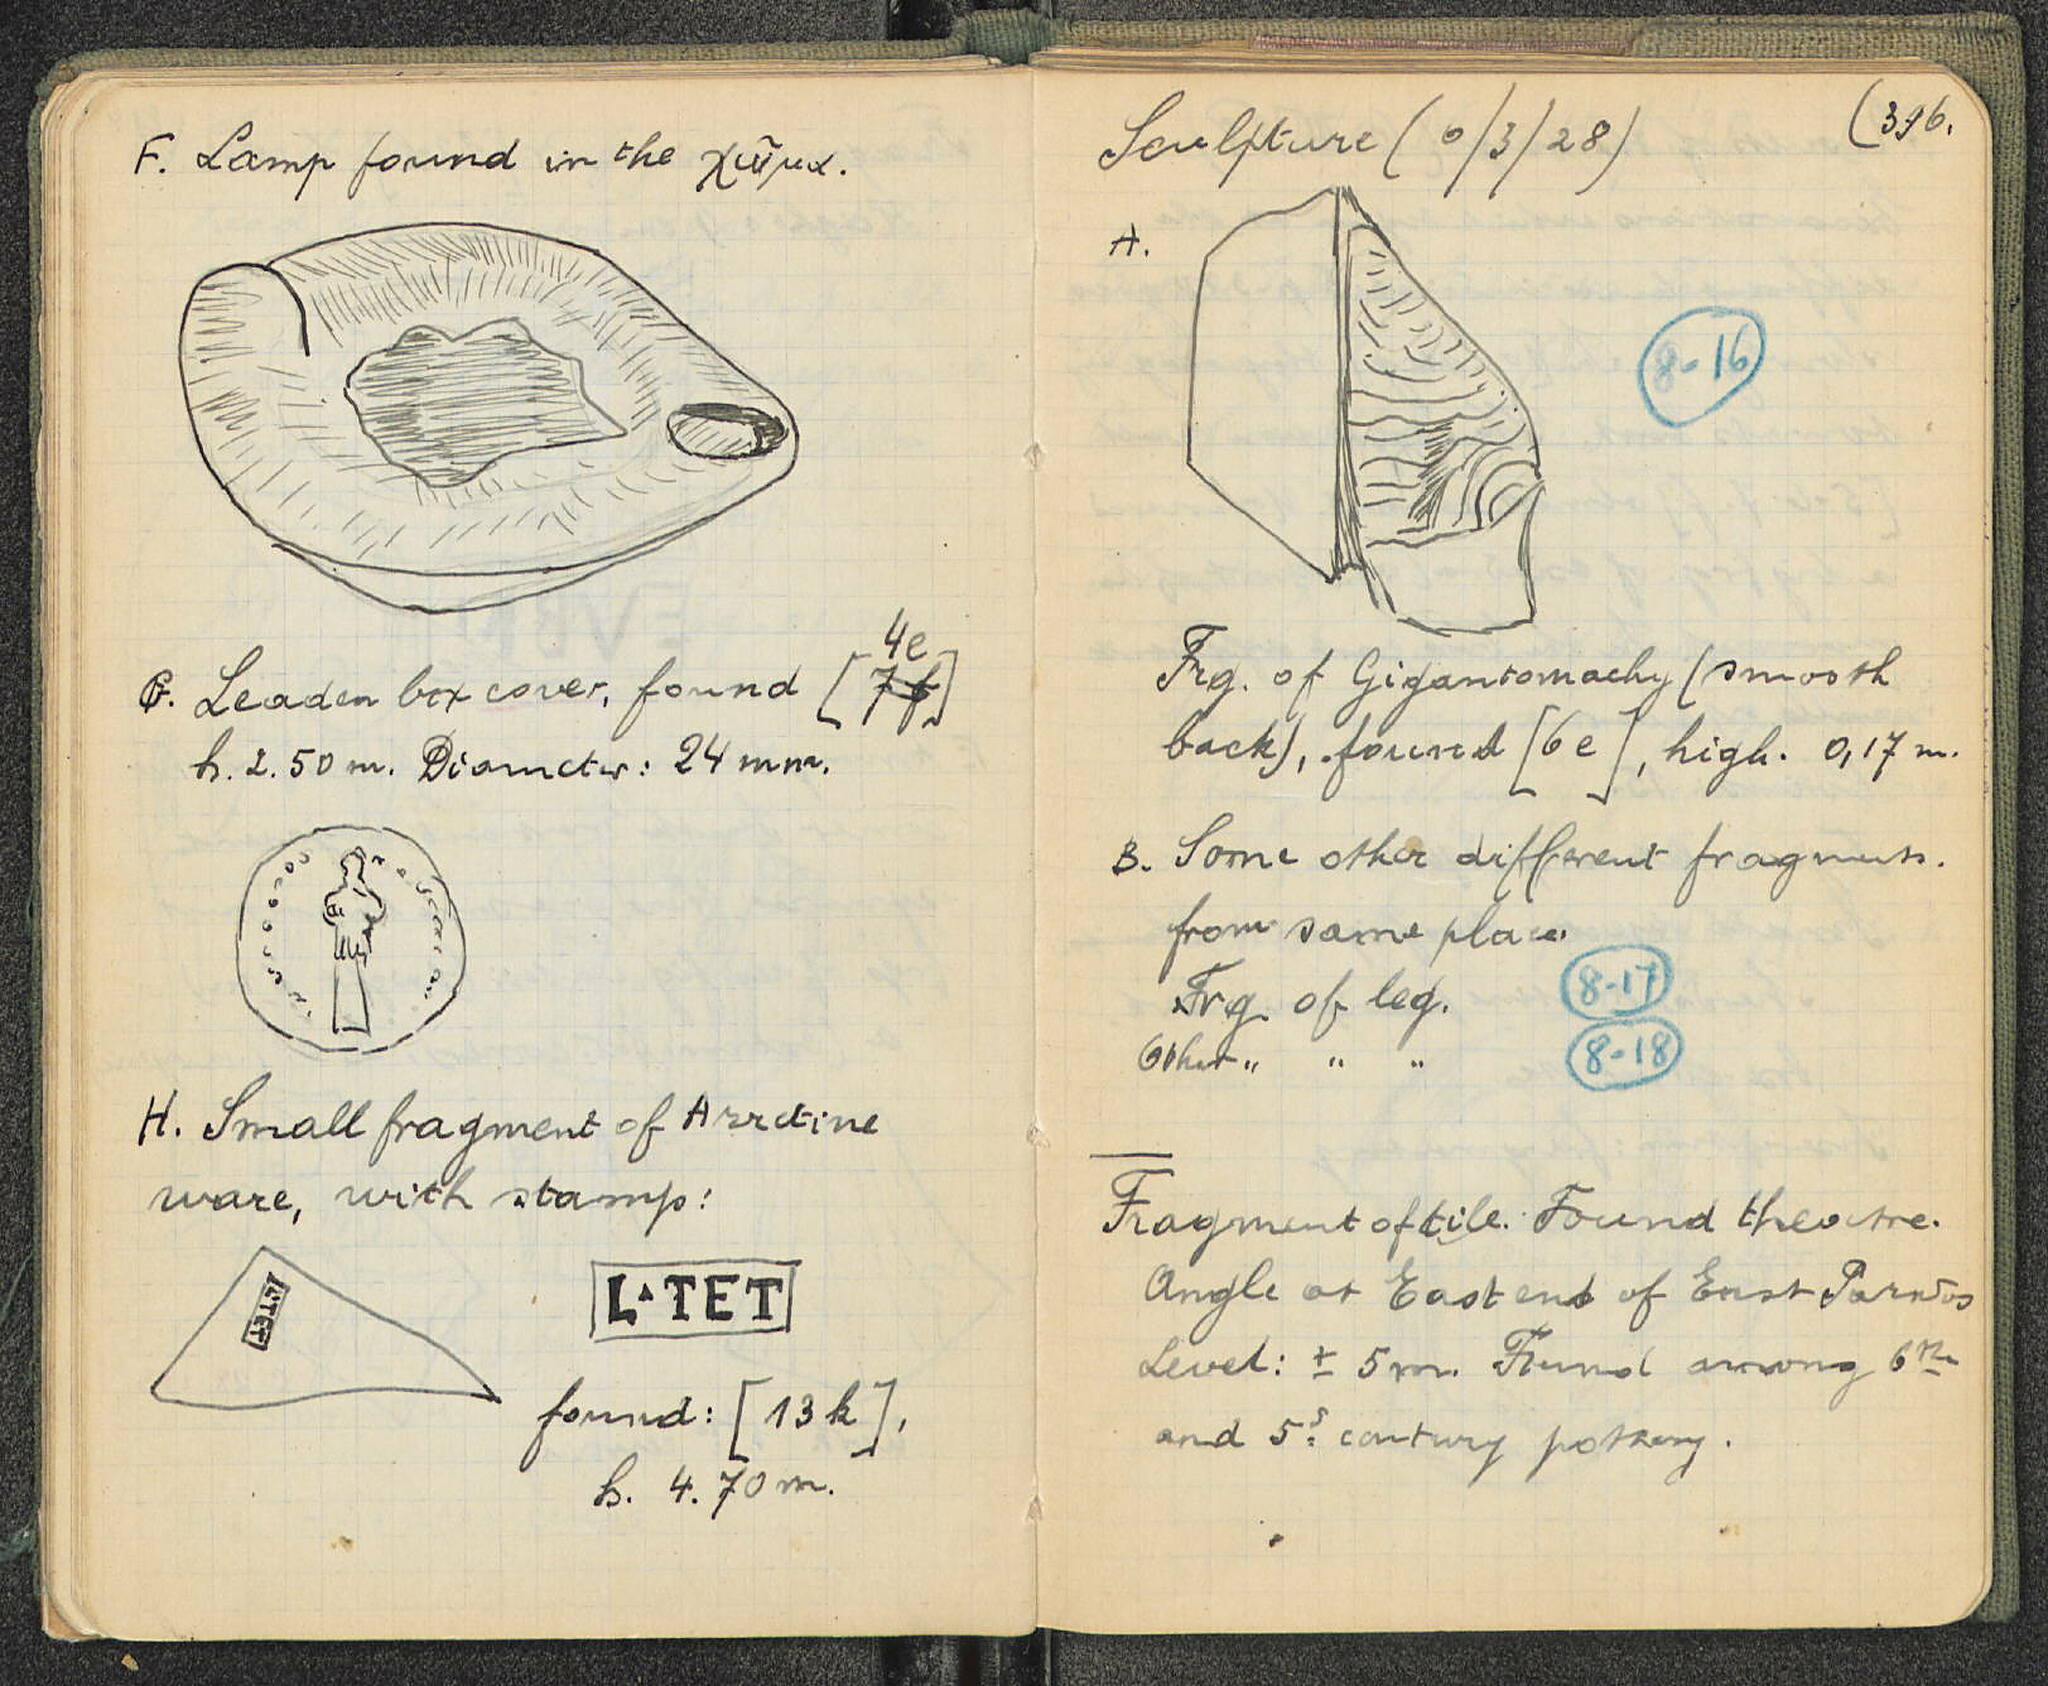 F. Lamp found in the χῶμα.
G. Leaden box cover, found [7f]
4e
h. 2.50 m. Diameter: 24 mm.
H. Small fragment of Arretine
ware, with stamp:
L·TET
L·TET
found: [13k],
h. 4.70 m.
(396.
Sculpture (6/3/28)
A.
8-16
Frg. of Gigantomachy (smooth
back), found [6e], high. 0,17 m.
B. Some other different fragments.
from same place.
Frg. of leg. 8-17
Other " " " 8-18
Fragment of tile. Found theatre.
Angle at East end of East Parodos
Level: ± 5 m. Found among 6th
and 5s century pottery.